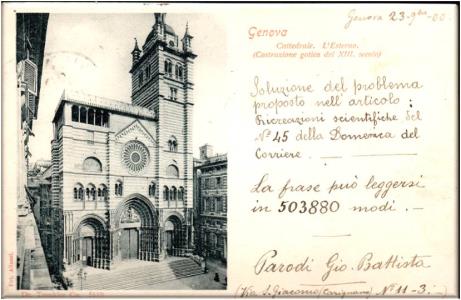 Genova 23-9bre-00
Genova
Cattedrale. L'Esterno.
(Costruzione gotica del XIII. secolo)
Soluzione del problema
proposto nell'articolo:
Ricreazioni scientifiche del
N° 45 della Domenica del
Corriere.
La frase può leggersi
in 503880 modi.
Parodi Gio. Battista
(Via S. Giacomo (Carignano) N° 11-3.)